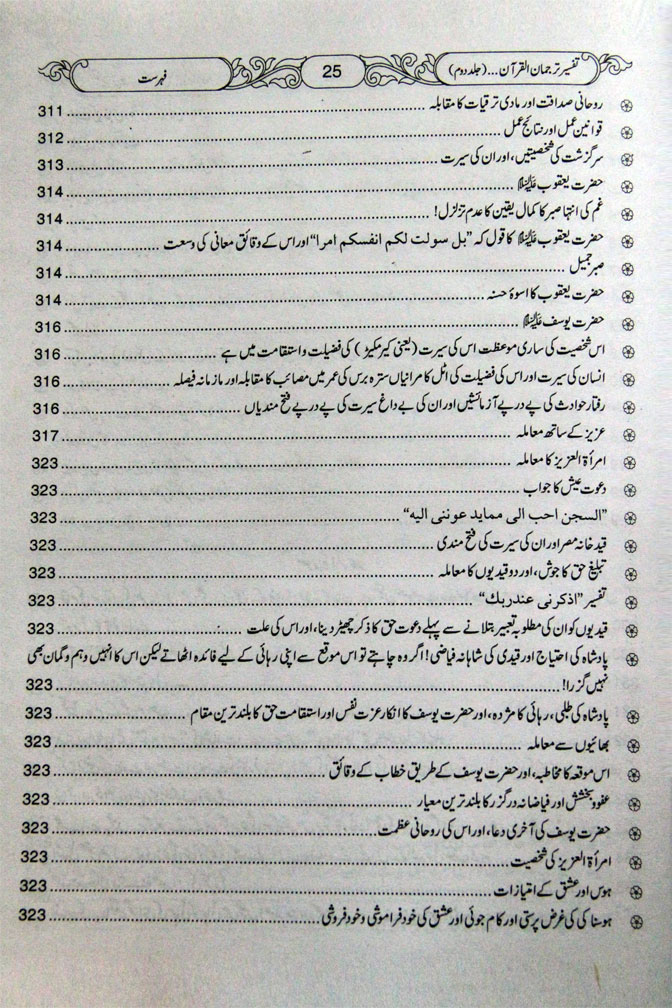 تفسیر ترجمان القرآن...(جلد دوم) 25 فہرست
روحانی صداقت اور مادی ترقیات کا مقابلہ 311
قوانین عمل اور نتائج عمل 312
سرگزشت کی شخصیتیں، اور ان کی سیرت 313
حضرت یعقوب علیہ السلام 314
غم کی انتہا صبر کا کمال یقین کا عدم تزلزل! 314
حضرت یعقوب علیہ السلام کا قول کہ "بل سولت لکم انفسکم امرا" اور اس کے وقائق معانی کی وسعت 314
صبر جمیل 314
حضرت یعقوب کا اسوۂ حسنہ 314
حضرت یوسف علیہ السلام 316
اس شخصیت کی ساری موعظت اس کی سیرت (یعنی کیرمکیڑ) کی فضیلت و استقامت میں ہے 316
انسان کی سیرت اور اس کی فضیلت کی اٹل کامرانیاں سترہ برس کی عمر میں مصائب کا مقابلہ اور مازمانہ فیصلہ 316
رفتار حوادث کی پے درپے آزمائشیں اور ان کی بے داغ سیرت کی پے درپے فتح مندیاں 316
عزیز کے ساتھ معاملہ 317
امرأۃ العزیز کا معاملہ 323
دعوت عیش کا جواب 323
"السجن احب الی ممايد عوننی اليه" 323
قید خانہ مصر اور ان کی سیرت کی فتح مندی 323
تبلیغ حق کا جوش، اور دو قیدیوں کا معاملہ 323
تفسیر "اذکرنی عندربك" 323
قیدیوں کو ان کی مطلوبہ تعبیر بتلانے سے پہلے دعوت حق کا ذکر چھیڑ دینا، اور اس کی علت 323
پادشاہ کی احتیاج اور قیدی کی شاہانہ فیاضی! اگر وہ چاہتے تو اس موقع سے اپنی رہائی کے لیے فائدہ اٹھاتے لیکن اس کا انہیں وہم و گمان بھی
نہیں گزرا! 323
پادشاہ کی طلبی، رہائی کا مژدہ، اور حضرت یوسف کا انکار عزت نفس اور استقامت حق کا بلند ترین مقام 323
بھائیوں سے معاملہ 323
اس موقعہ کا مخاطبہ، اور حضرت یوسف کے طریق خطاب کے وقائق 323
عفو و بخشش اور فیاضانہ درگزر کا بلند ترین معیار 323
حضرت یوسف کی آخری دعا، اور اس کی روحانی عظمت 323
امرأۃ العزیز کی شخصیت 323
ہوس اور عشق کے امتیازات 323
ہوسنا کی کی غرض پرستی اور کام جوئی اور عشق کی خود فراموشی و خود فروشی 323